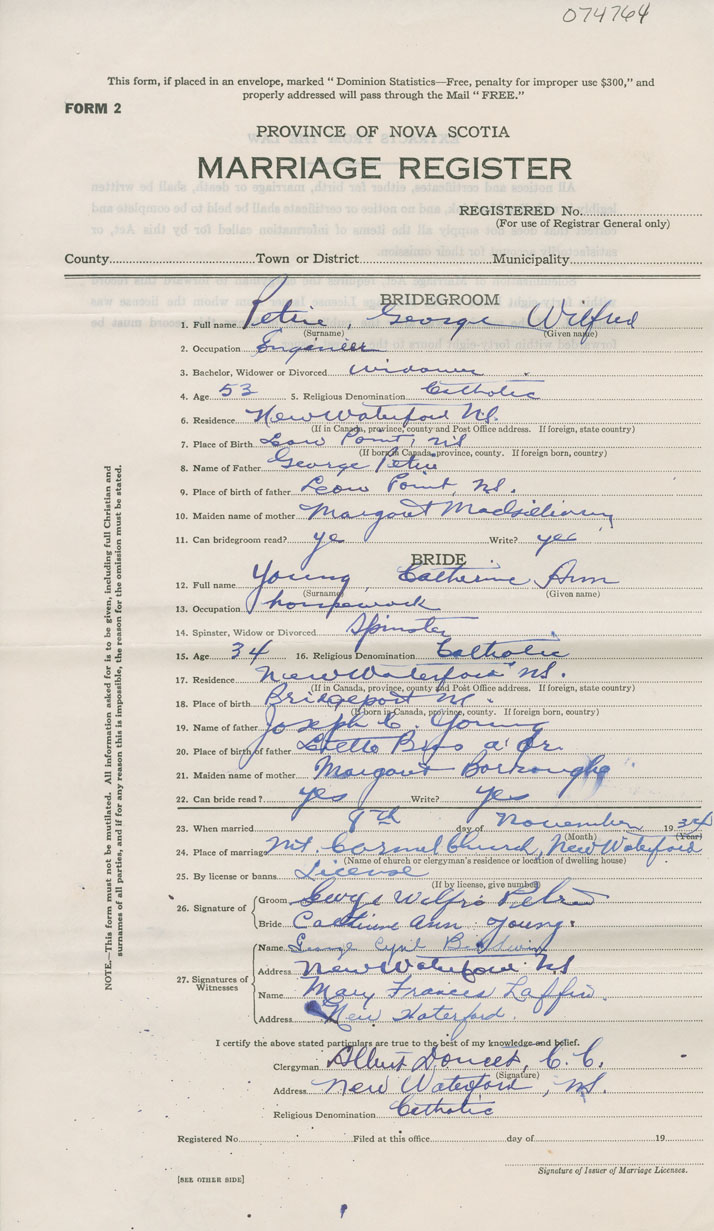 074764
This form, if placed in an envelope, marked “ Dominion Statistics—Free, penalty for improper use $300,” and
properly addressed will pass through the Mail “ FREE.”
FORM 2
PROVINCE OF NOVA SCOTIA
MARRIAGE REGISTER
REGISTERED No.
(For use of Registrar General only)
County Town or District Municipality
BRIDEGROOM
1. Full name Petrie, George Wilfred
(Surname) (Given name)
2. Occupation Engineer
3. Bachelor, Widower or Divorced widower.
4. Age 53 5. Religious Denomination Catholic
6. Residence New Waterford N.S.
(If in Canada, province, county and Post Office address. If foreign, state country)
7. Place of Birth Low Point, NS
(If born in Canada, province, county. If foreign born, country)
8. Name of Father George Petrie
9. Place of birth of father Low Point, N.S.
10. Maiden name of mother Margaret
11. Can bridegroom read? ye Write? yes
BRIDE
12. Full name Young, Catherine Ann
(Surname) (Given name)
13. Occupation housework
14. Spinster, Widow or Divorced Spinster
15. Age 34 16. Religious Denomination Catholic
17. Residence New Waterford NS.
(If in Canada, province, county and Post Office address. If foreign, state country)
18. Place of birth Bridgeport N.
(If born in Canada, province, county. If foreign born, country)
19. Name of father Joseph C. Young
20. Place of birth of father
21. Maiden name of mother Margaret
22. Can bride read? yes Write? yes
23. When married 9th day of November 1934
(Month) (Year)
24. Place of marriage Mt. Carmel Church, New Waterford
(Name of church or clergyman's residence or location of dwelling house)
25. By license or banns License
(If by license, give number)
26. Signature of Groom George Wilfred Petrie
Bride Catherine Ann Young.
27. Signatures of Witnesses Name George Cyril
Address New Waterford NS
Name Mary Francis Laffin.
Address New Waterford.
I certify the above stated particulars are true to the best of my knowledge and belief.
Clergyman Albert Doucet, C.C.
(Signature)
Address New Waterford, NS.
Religious Denomination Catholic
Registered No. Filed at this office day of 19
Signature of Issuer of Marriage Licenses.
[SEE OTHER SIDE]
NOTE.—This form must not be mutilated. All information asked for is to be given, including full Christian and
surnames of all parties, and if for any reason this is impossible, the reason for the omission must be stated.